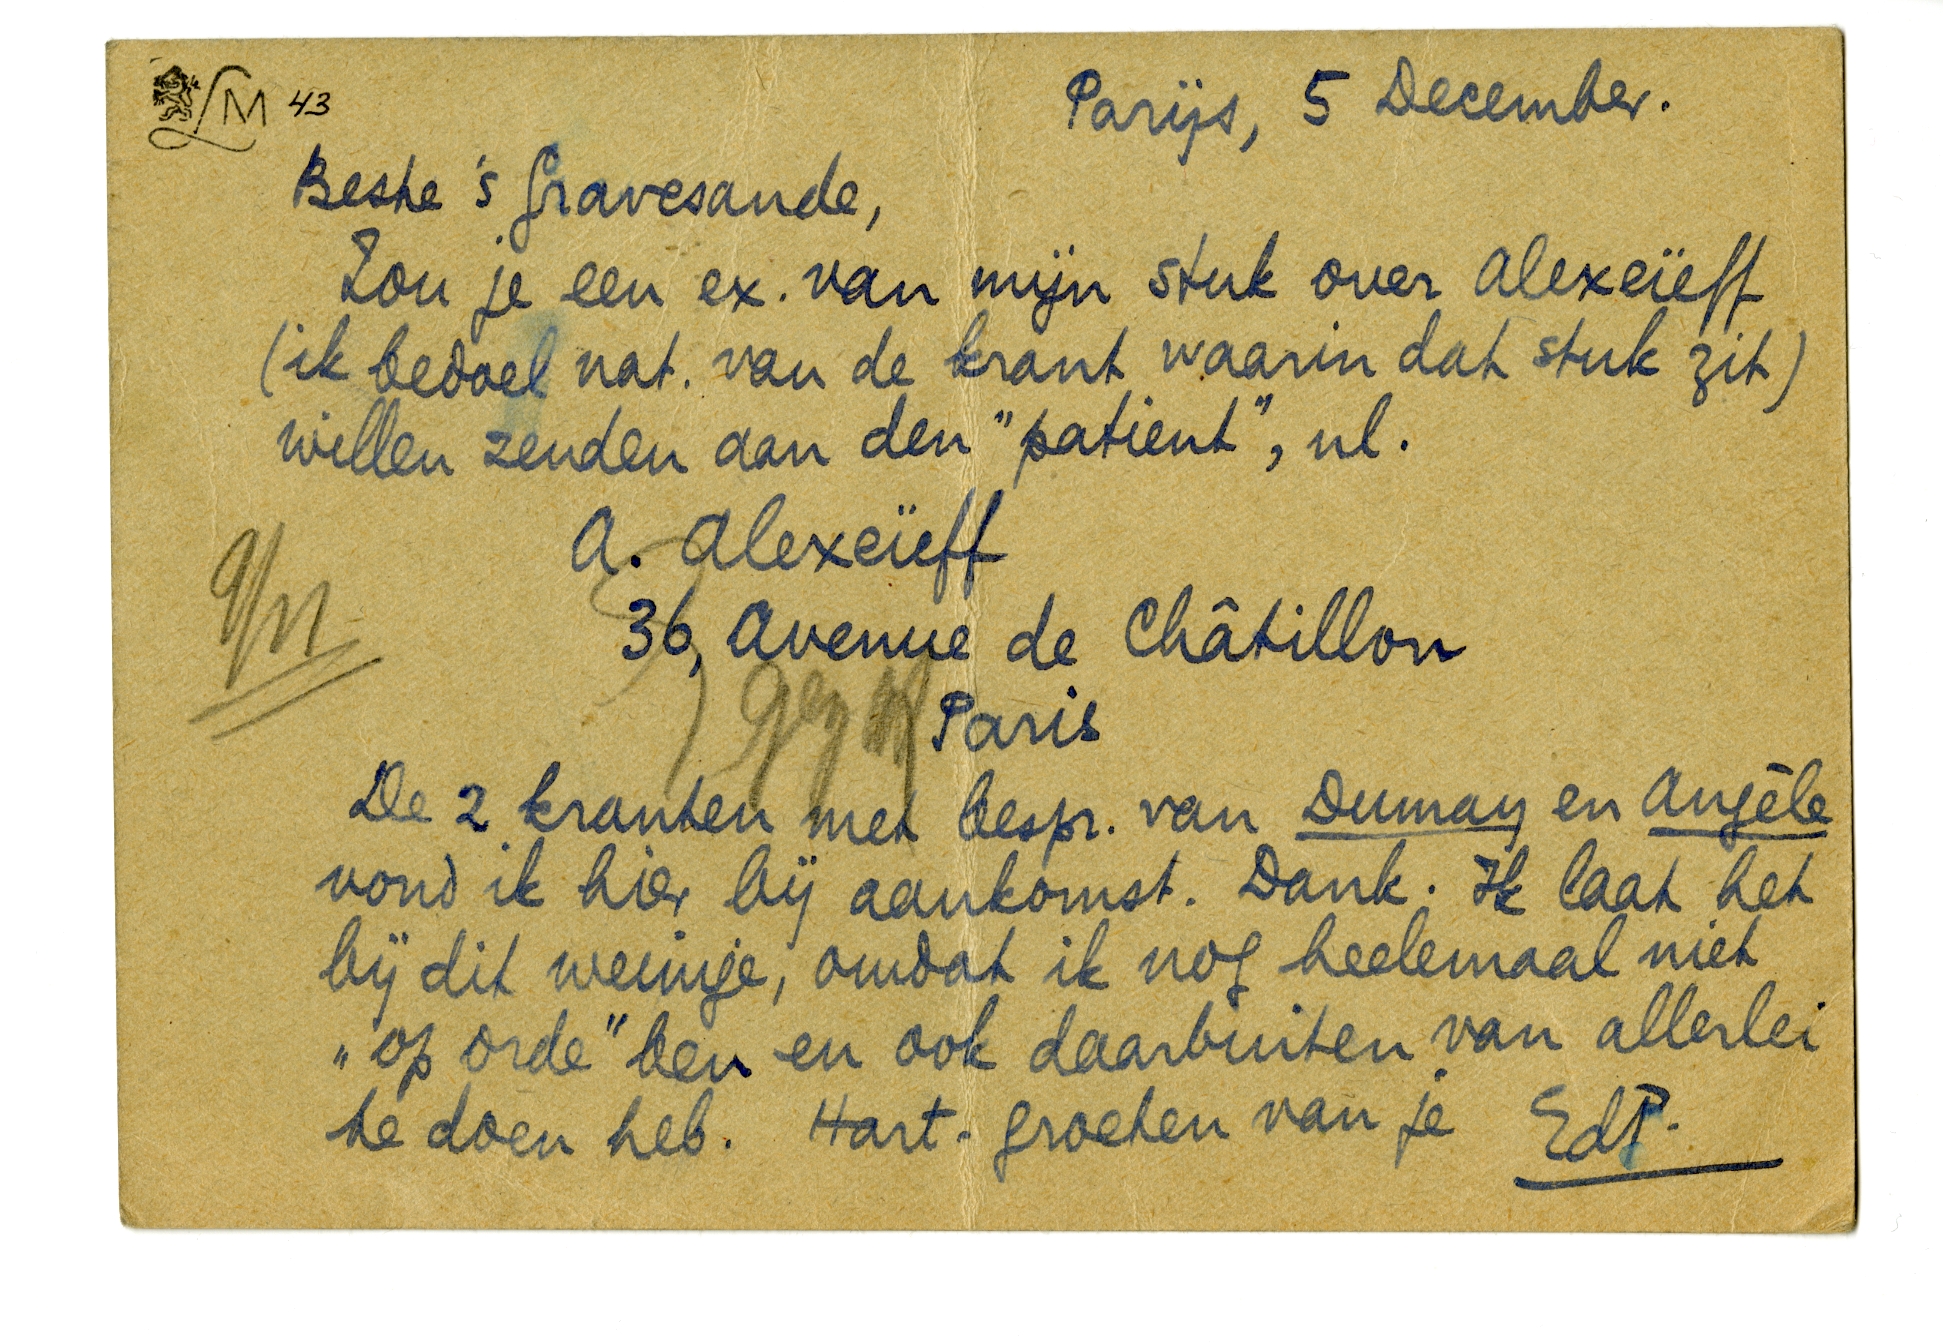 LM 43
Parijs, 5 December.
Beste 's Gravesande,
Zou je een ex. van mijn stuk over Alexeïeff
(ik bedoel nat. van de krant waarin dat stuk zit)
willen zenden aan den "patient", nl.
A. Alexeïeff
36, Avenue de Châtillon
Paris
De 2 kranten met bespr. van Dumay en Angèle
vond ik hier bij aankomst. Dank. Ik laat het
bij dit weinige, omdat ik nog heelemaal niet
„op orde" ben en ook daarbuiten van allerlei
te doen heb. Hart. groeten van je EdP.